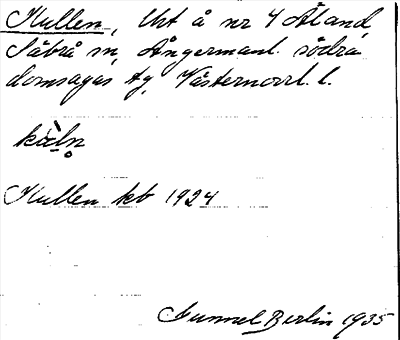 Kullen, Uht å nr 4 Åland,
Säbrå sn, Ångermanl. södra
domsagas tg, Västernorrl. l.
Kullen kb 1924
Gunnel Berlin 1935